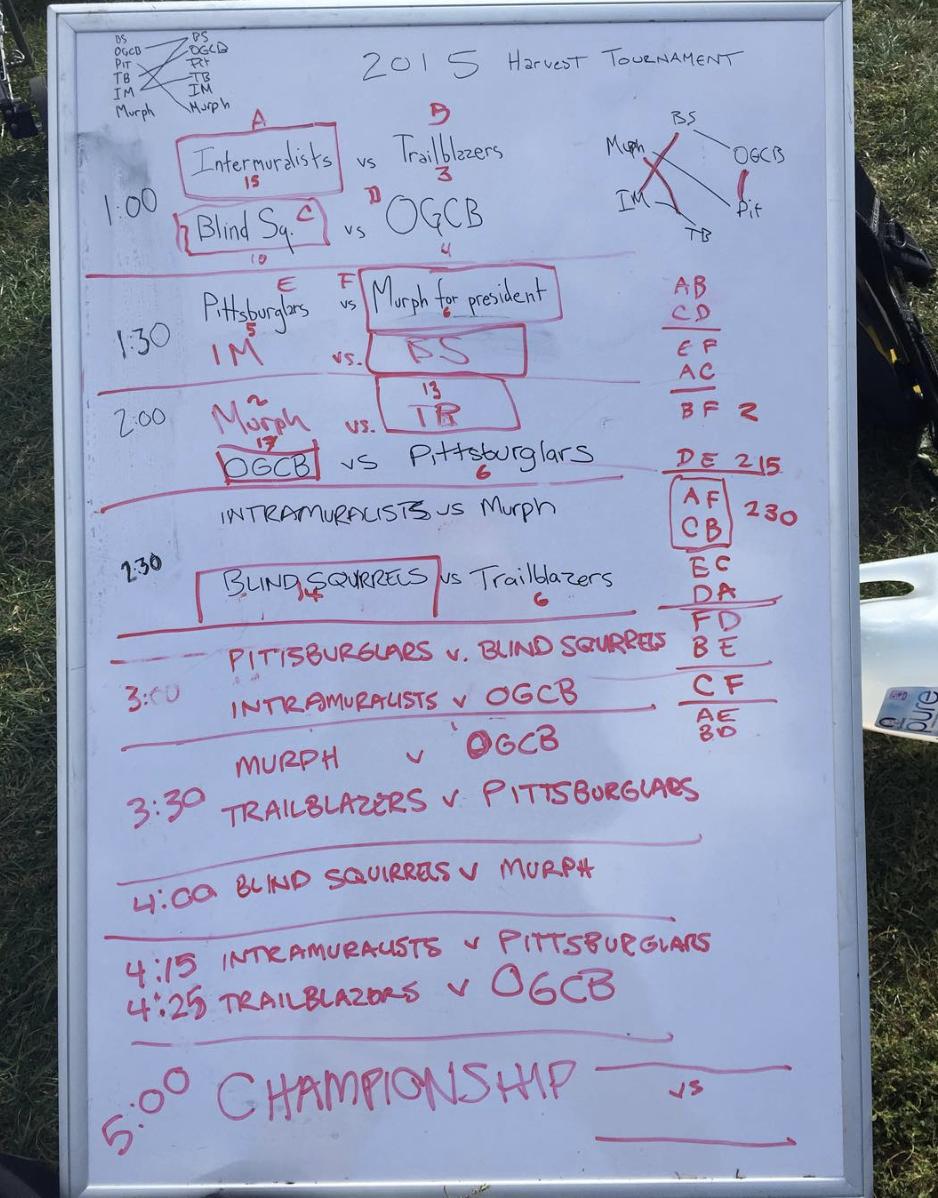 BS BS
OGCB OGCB
Pit Pit
TB TB
IM IM
Murph Murph
2015 Harvest Tournament
A B
Intermuralists vs Trailblazers
15 3
1:00
C D
Blind Sq. vs OGCB
10 4
E F
Pittsburglars vs Murph for president
5 6
1:30
IM vs. BS
2:00
2 13
Murph vs. TB
17
OGCB vs Pittsburglars
6
INTRAMURALISTS vs Murph
2:30
BLIND SQURRELS vs Trailblazers
14 6
PITTSBURGLARS v. BLIND SQUIRRELS
3:00
INTRAMURALISTS v OGCB
MURPH v OGCB
3:30
TRAILBLAZERS v PITTSBURGLARS
4:00 BLIND SQUIRRELS v MURPH
4:15 INTRAMURALISTS v PITTSBURGLARS
4:25 TRAILBLAZORS v OGCB
5:00 CHAMPIONSHIP vs
BS
Murph
OGCB
IM
Pit
TB
AB
CD
EF
AC
BF 2
DE 215
AF
230
CB
EC
DA
FD
BE
CF
AE
BD
pure